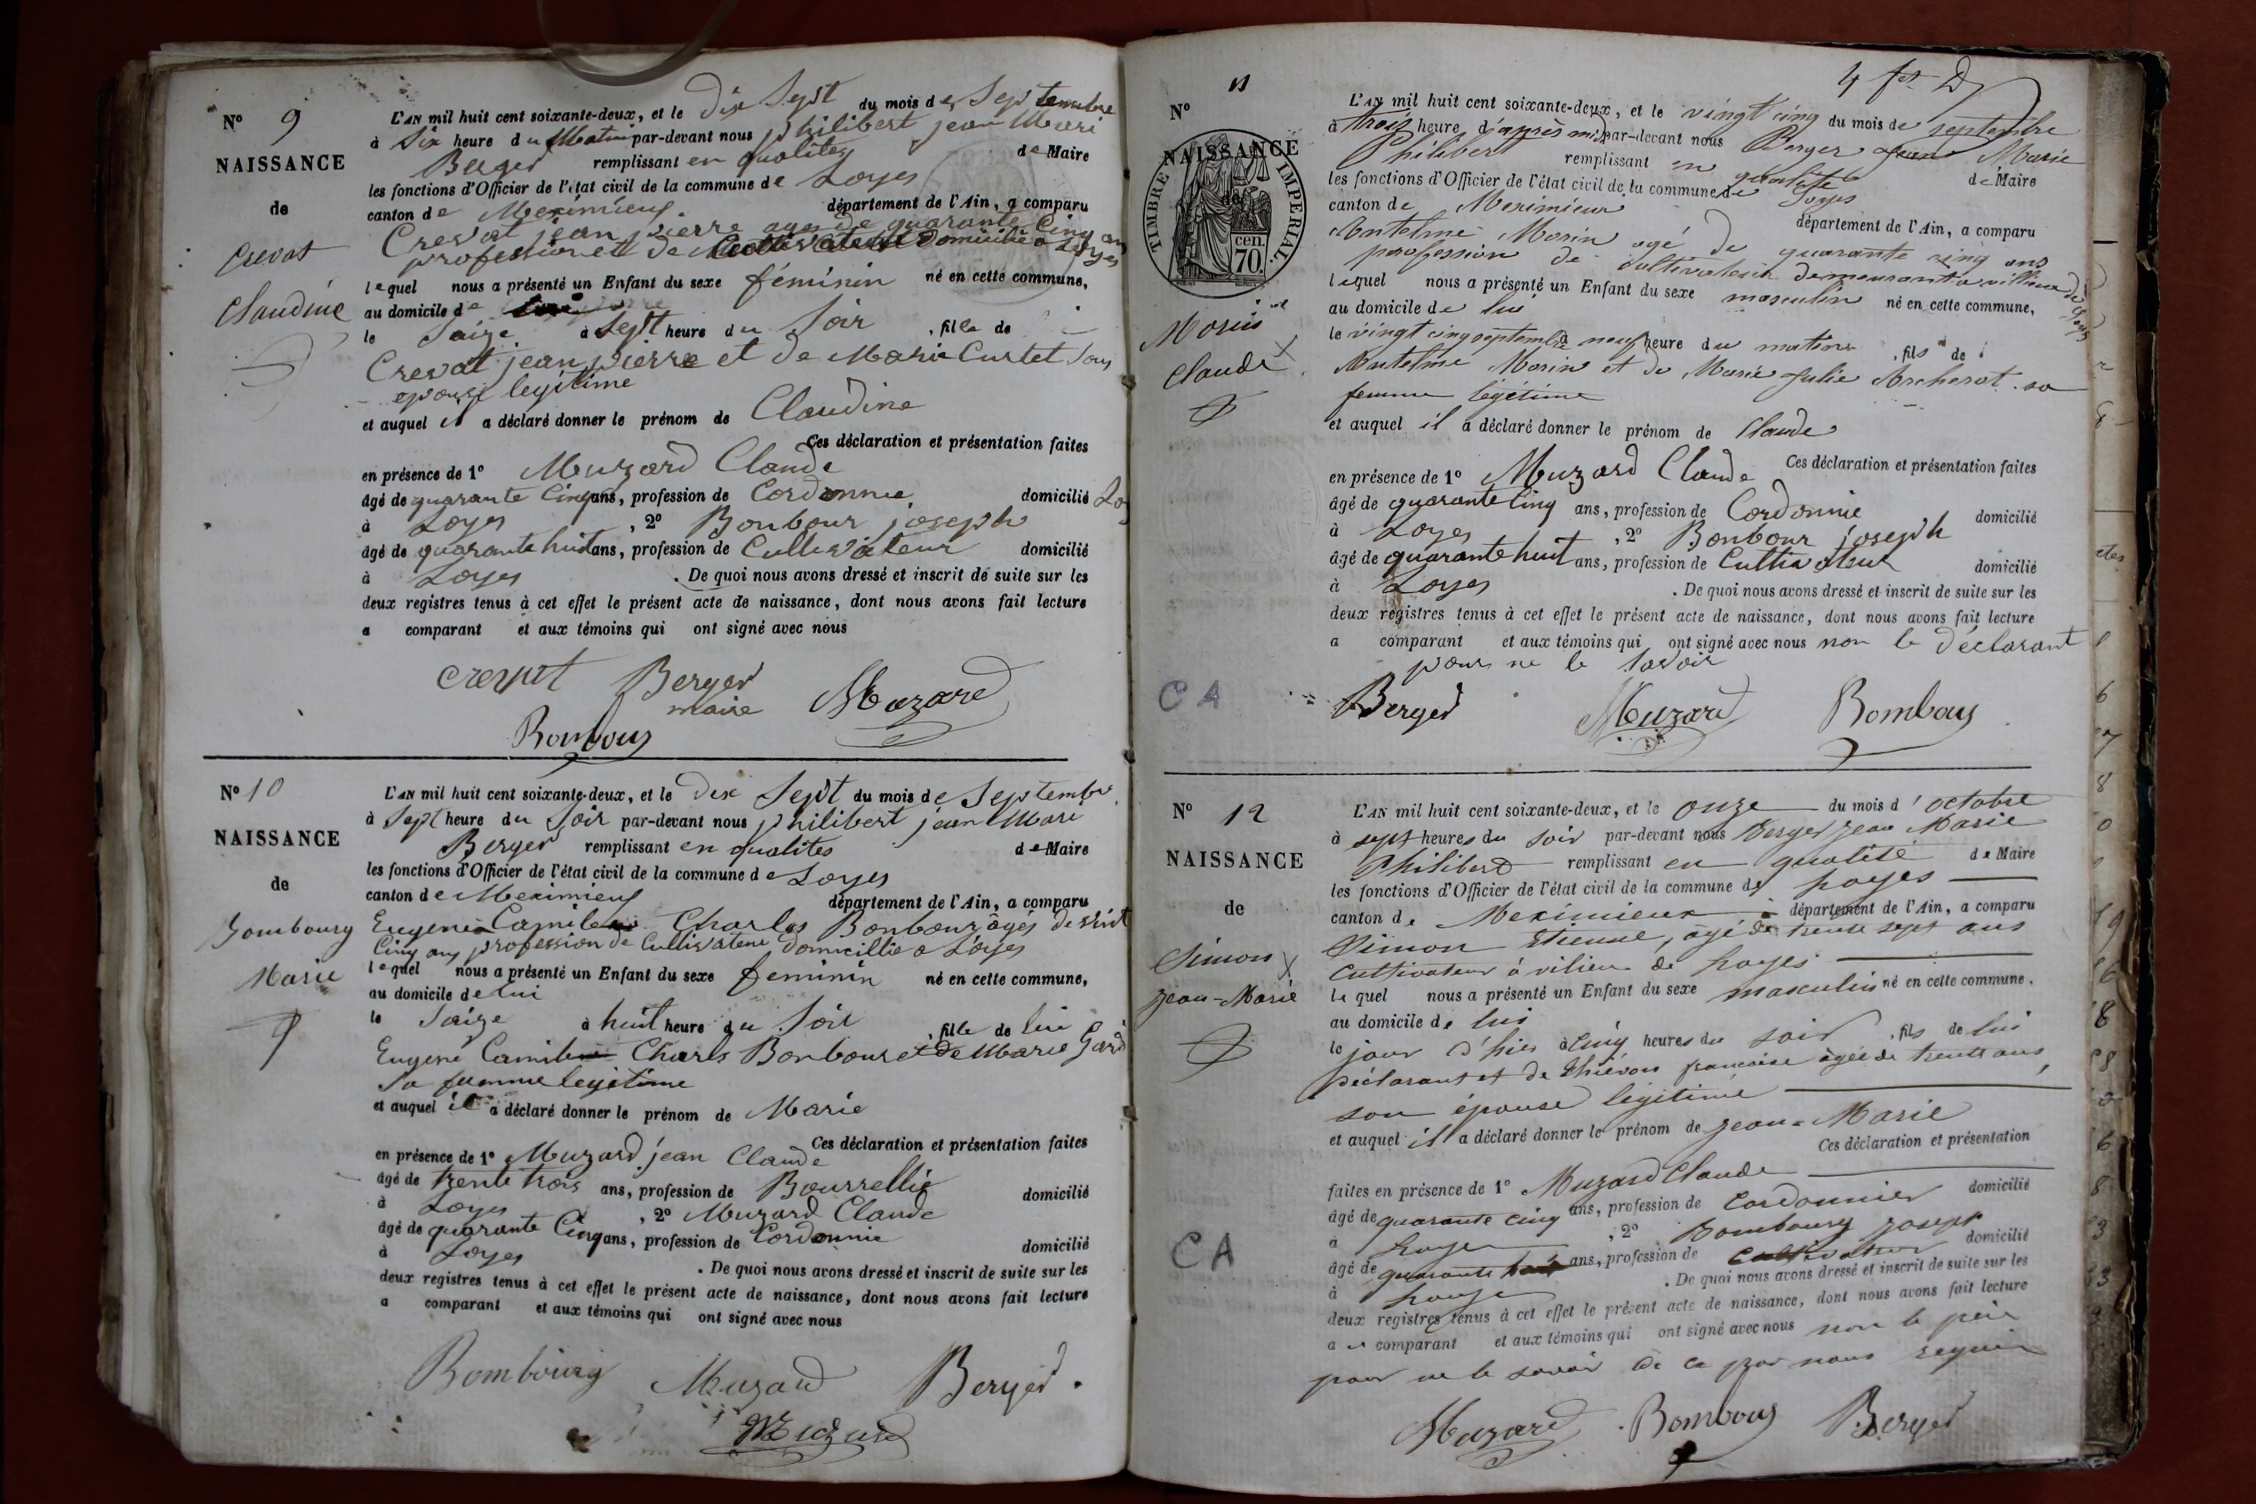 N° 9
NAISSANCE
de
Crevat
Claudine
L'AN mil huit cent soixante-deux, et le dix Sept du mois de Septembre
à Six heure du Matin par-devant nous philibert jean Mari
Berger remplissant en qualites de Maire
les fonctions d'Officier de l'état civil de la commune de Loyes
canton de Meximieux département de l'Ain, a comparu
Crevat jean pierre ages de quarante Cinq ans
profession et de Cultivateur Domicilié a Loyes
lequel nous a présenté un Enfant du sexe féminin né en cette commune,
au domicile de
le Saize à Sept heure du Soir , fille de
Crevat jean pierre et de Marie Curtet Sons
epouse legitime
et auquel il a déclaré donner le prénom de Claudine
Ces déclaration et présentation faites
en présence de 1° Muzard Claude
âgé de quarante Cinq ans, profession de Cordonnie domicilié
à Loyes , 2° Bonbour joseph
âgé de quarante huit ans, profession de Cultivateur domicilié
à Loyes . De quoi nous avons dressé et inscrit de suite sur les
deux registres tenus à cet effet le présent acte de naissance, dont nous avons fait lecture
a comparant et aux témoins qui ont signé avec nous
Crevat Berger Muzard
maire
Bombouy
N° 10
NAISSANCE
de
Gombourg
Marie
L'AN mil huit cent soixante-deux, et le dix Sept du mois de Septembre
à Sept heure du Soir par-devant nous philibert jean Mari
Berger remplissant en qualites de Maire
les fonctions d'Officier de l'état civil de la commune de Loyes
canton de Meximieux département de l'Ain, a comparu
Eugene Camile Charles Bonbour âgés de vint
Cinq ans profession de Cultivateur Domicillie a Loyes
lequel nous a présenté un Enfant du sexe feminin né en cette commune,
au domicile de lui
le Saize à huit heure du Soir , fille de lui
Eugene Camile Charls Bonbour et de Marie Gard
Sa famme legitime
et auquel il a déclaré donner le prénom de Marie
Ces déclaration et présentation faites
en présence de 1° Muzard jean Claude
âgé de trente trois ans, profession de Bourrellié domicilié
à Loyes , 2° Muzard Claude
âgé de quarante Cinq ans, profession de Cordonnie domicilié
à Loyes . De quoi nous avons dressé et inscrit de suite sur les
deux registres tenus à cet effet le présent acte de naissance, dont nous avons fait lecture
a comparant et aux témoins qui ont signé avec nous
Bombourg Muzard Berger
Muzard
N° 11
NAISSANCE
de
TIMBRE IMPERIAL.
cen.
70.
Morin
Claude
CA
L'AN mil huit cent soixante-deux, et le vingt cinq du mois de septembre
à trois heure d'après midi par-devant nous Berger Jean Marie
Philibert remplissant en qualité de Maire
les fonctions d'Officier de l'état civil de la commune de Loyes
canton de Meximieux département de l'Ain, a comparu
Antelme Morin agé de quarante cinq ans
profession de cultivateur demeurant a villieu de Loyes
lequel nous a présenté un Enfant du sexe masculin né en cette commune,
au domicile de lui
le vingt cinq septembre neuf heure du matin , fils de
Antelme Morin et de Marie Julie Archerot sa
femme légitime
et auquel il a déclaré donner le prénom de Claude
Ces déclaration et présentation faites
en présence de 1° Muzard Claude
âgé de quarante Cinq ans, profession de Cordonnie domicilié
à Loyes , 2° Bonbour joseph
âgé de quarante huit ans, profession de Cultivateur domicilié
à Loyes . De quoi nous avons dressé et inscrit de suite sur les
deux registres tenus à cet effet le présent acte de naissance, dont nous avons fait lecture
a comparant et aux témoins qui ont signé avec nous non le déclarant
pour ne le savoir
Berger Muzard Bombouy
N° 12
NAISSANCE
de
Simon
Jean-Marie
CA
L'AN mil huit cent soixante-deux, et le onze du mois d'octobre
à sept heures du soir par-devant nous Berger Jean Marie
Philibert remplissant en qualité de Maire
les fonctions d'Officier de l'état civil de la commune de Loyes
canton de Meximieux département de l'Ain, a comparu
Simon Etienne, âgé de trente sept ans
cultivateur à vilieu de Loyes
lequel nous a présenté un Enfant du sexe masculin né en cette commune,
au domicile de lui
le jour d'hier à cinq heures du soir , fils de lui
déclarant et de Thiévon francoise âgée de trente ans,
son épouse légitime
et auquel il a déclaré donner le prénom de Jean-Marie
Ces déclaration et présentation
faites en présence de 1° Muzard Claude
âgé de quarante cinq ans, profession de cordonnier domicilié
à Loyes , 2° Bombourg Joseph
âgé de quarante huit ans, profession de cultivateur domicilié
à Loyes . De quoi nous avons dressé et inscrit de suite sur les
deux registres tenus à cet effet le présent acte de naissance, dont nous avons fait lecture
a comparant et aux témoins qui ont signé avec nous non le père
pour ne le savoir de ce par nous requis
Muzard Bombouy Berger